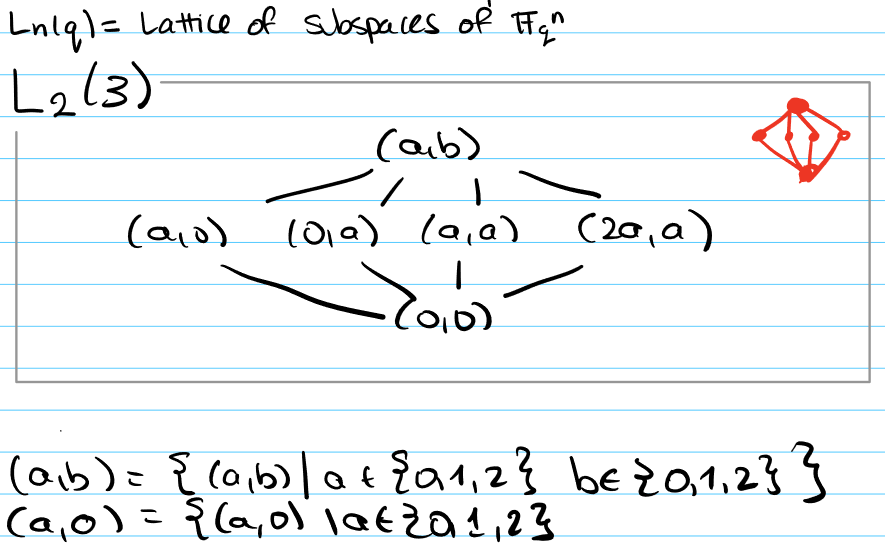 Ln(q) = Lattice of subspaces of 𝔽qⁿ
L₂(3)
(a,b)
(a,0) (0,a) (a,a) (2a,a)
(0,0)
(a,b) = {(a,b) | a ∈ {0,1,2} b ∈ {0,1,2}}
(a,0) = {(a,0) | a ∈ {0,1,2}